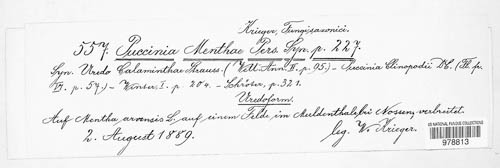 Krieger, Fungi saxonici.
557. Puccinia Menthae Pers. Syn. p. 227.
Syn. Uredo Calaminthae Strauss. (Wett. Ann. II. p. 95.) – Puccinia Clinopodii DC. (Fl. fr.
VI. p. 57.) – Winter, I. p. 204. – Schröter, p. 321.
Uredoform.
Auf Mentha arvensis L. auf einem Felde im Muldenthale bei Nossen verbreitet.
2. August 1889.
leg. W. Krieger.
US NATIONAL FUNGUS COLLECTIONS
978813